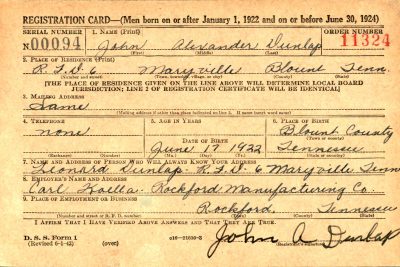 REGISTRATION CARD—(Men born on or after January 1, 1922 and on or before June 30, 1924)
SERIAL NUMBER 1. NAME (Print) ORDER NUMBER
N00094 John Alexander Dunlap 11324
(First) (Middle) (Last)
2. PLACE OF RESIDENCE (Print)
R.F.D. 6 Maryville Blount Tenn.
(Number and street) (Town, township, village, or city) (County) (State)
[THE PLACE OF RESIDENCE GIVEN ON THE LINE ABOVE WILL DETERMINE LOCAL BOARD
JURISDICTION; LINE 2 OF REGISTRATION CERTIFICATE WILL BE IDENTICAL]
3. MAILING ADDRESS
Same
[Mailing address if other than place indicated on line 2. If same insert word same]
4. TELEPHONE 5. AGE IN YEARS 6. PLACE OF BIRTH
none Blount County
DATE OF BIRTH (Town or county)
June 17 1922 Tennessee
(Exchange) (Number) (Mo.) (Day) (Yr.) (State or country)
7. NAME AND ADDRESS OF PERSON WHO WILL ALWAYS KNOW YOUR ADDRESS
Leonard Dunlap R.F.D. 6 Maryville Tenn
8. EMPLOYER'S NAME AND ADDRESS
Carl Rockford Manufacturing Co.
9. PLACE OF EMPLOYMENT OR BUSINESS
Rockford, Tennessee
(Number and street or R. F. D. number) (Town) (County) (State)
I AFFIRM THAT I HAVE VERIFIED ABOVE ANSWERS AND THAT THEY ARE TRUE.
D. S. S. Form 1
(Revised 6-1-42) (over) John A Dunlap
(Registrant's signature)